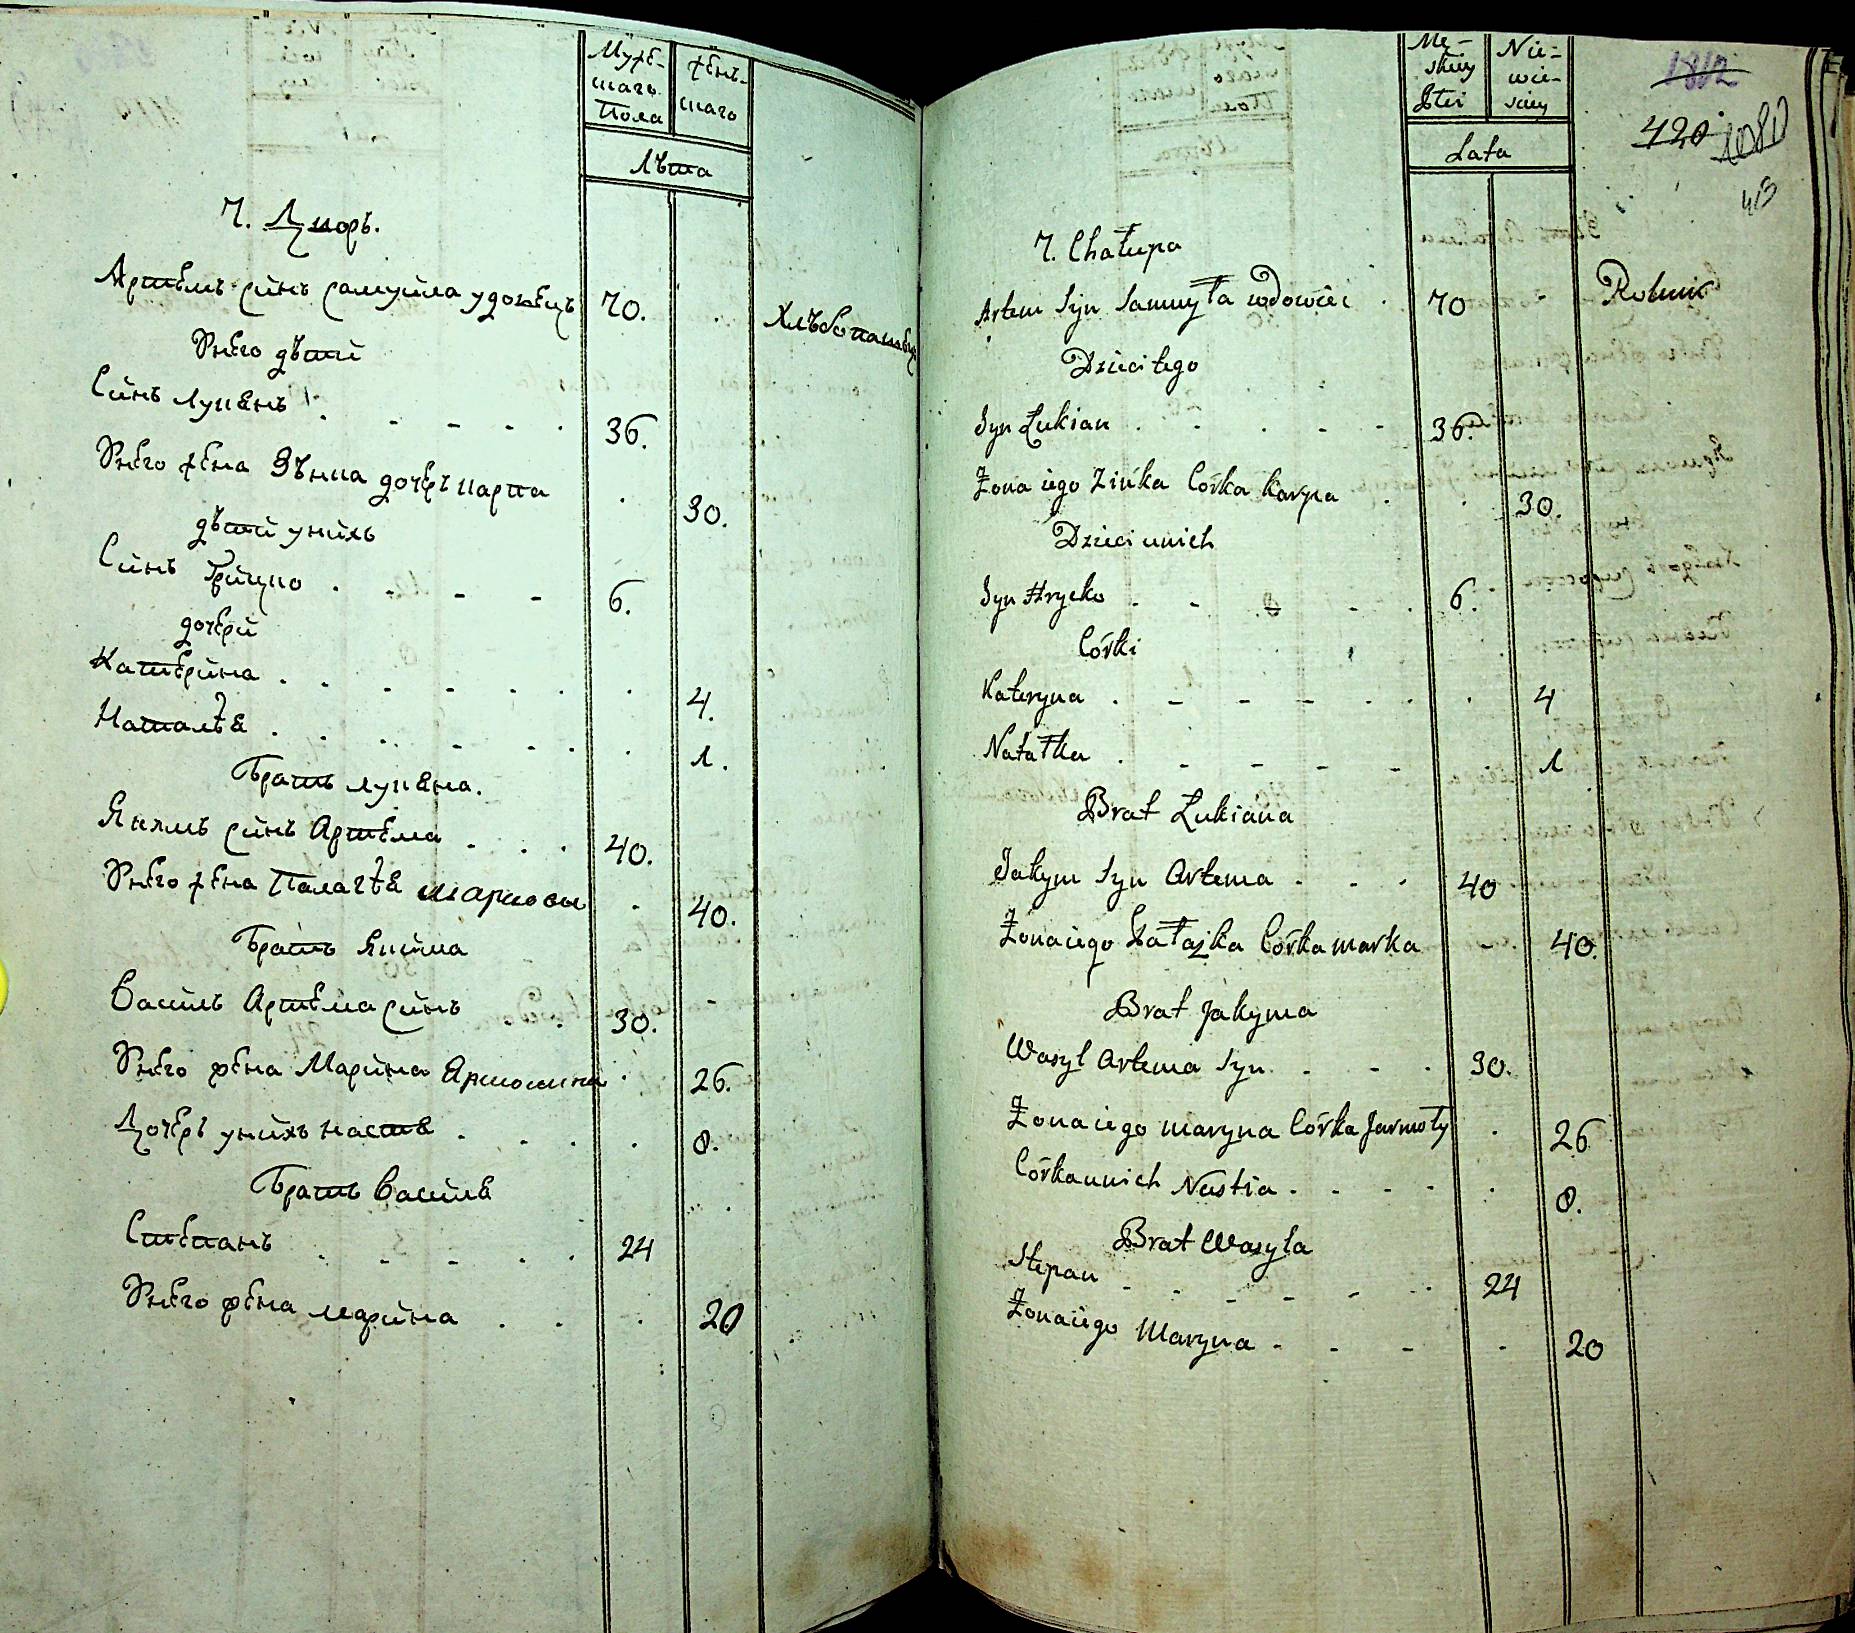 Муже-
скаго
Пола
Жень-
скаго
Лѣта
7. Дворъ.
Артемъ синъ самуйла удовецъ 70.
Унего дѣти
Синъ лукянъ 36.
Унего жена Зѣнка дочерь карпа 30.
дѣти унихъ
Синъ Грицко 6.
дочери
Катерина 4.
Наталѣя 1.
Братъ лукяна.
Якимъ синъ Артема 40.
Унего жена Палагѣя марковы 40.
Братъ Якима
Василь Артема синъ 30.
Унего жена Марина 26.
Дочерь унихъ настя 8.
Братъ василя
Степанъ 24
Унего жена марина 20
Mę-
skiey
Płci
Nie-
wie-
sciey
Lata
1812
420
1080
413
7. Chałupa
Artem Syn Samuyła wdowiec 70 Rolnik
Dzieci tego
Syn Łukian 36.
Żona iego Zińka Córka karpa 30.
Dzieci unich
Syn Hrycko 6.
Córki
Kateryna 4
Natałka 1
Brat Łukiana
Jakym Syn Artema 40
Żona iego Pałażka Córka marka 40.
Brat Jakyma
Wasyl Artema Syn 30.
Żona iego maryna Córka Jarmoły 26
Córka unich Nastia 8.
Brat Wasyla
Stepan 24
Żona iego Maryna 20